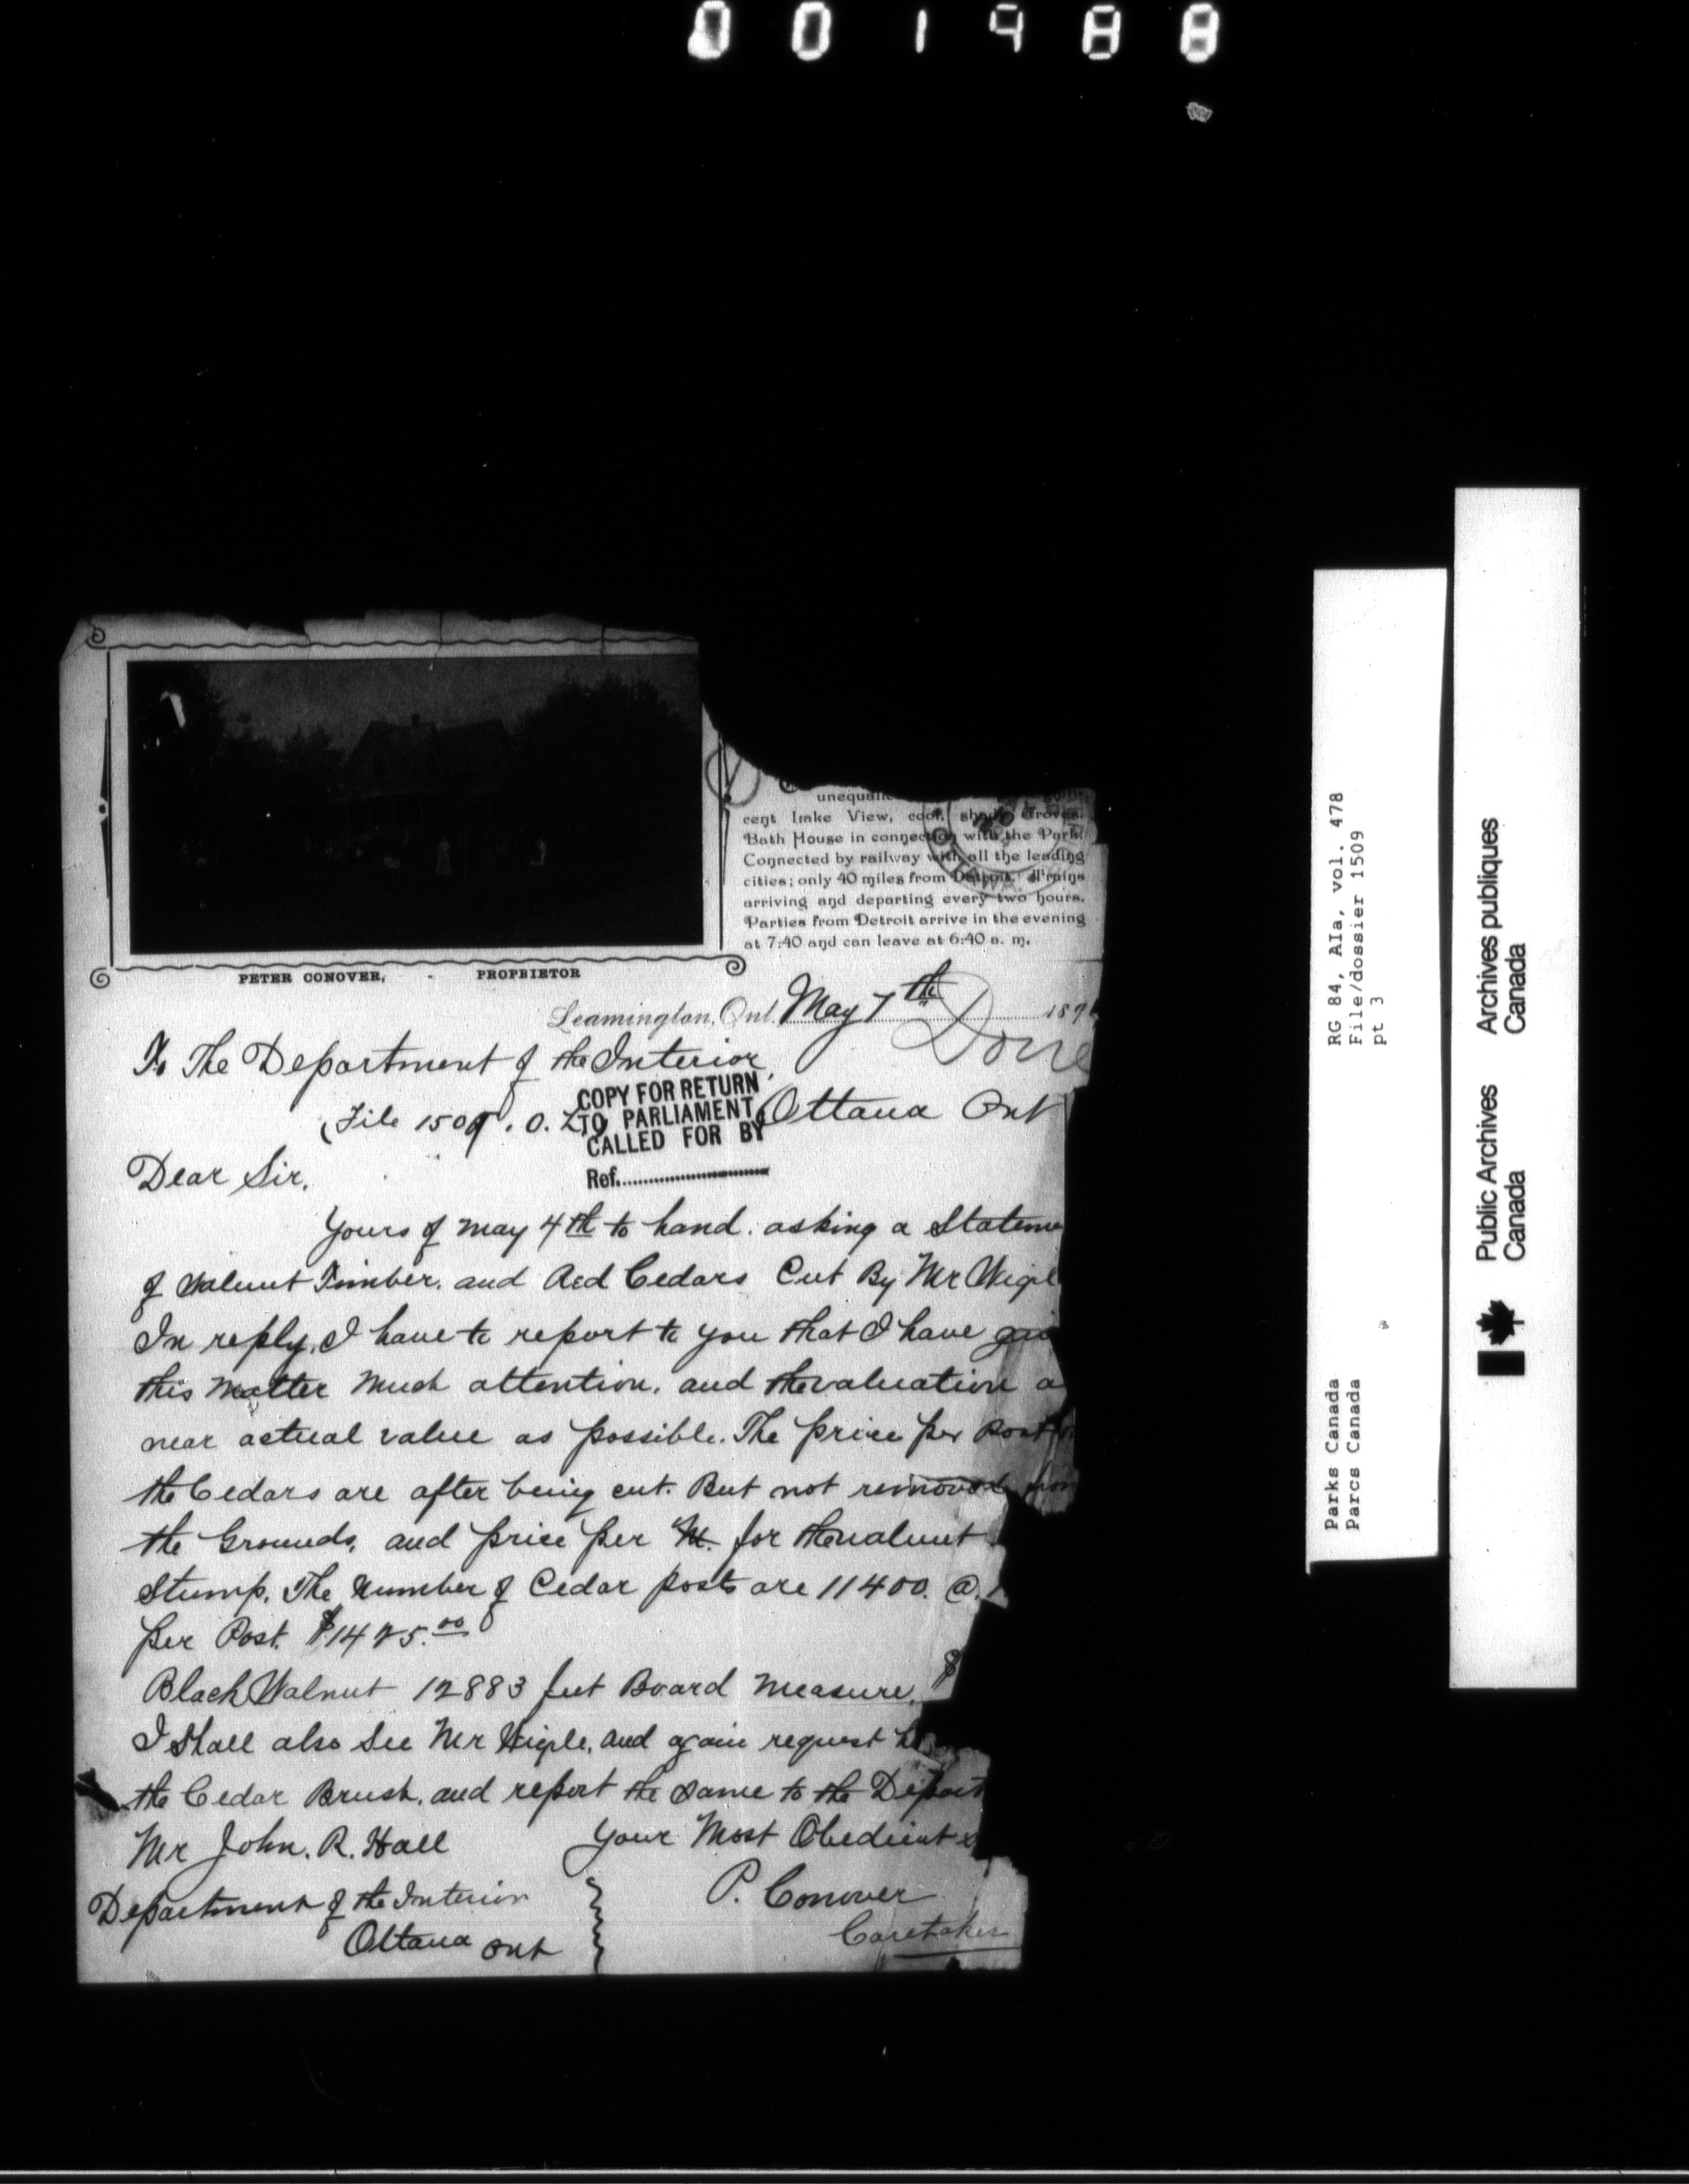 001488
unequal
cent Lake View, cool, shady Groves.
Bath House in connection with the Park.
Connected by railway with all the leading
cities; only 40 miles from Detroit. Trains
arriving and departing every two hours.
Parties from Detroit arrive in the evening
at 7:40 and can leave at 6:40 a. m.
PETER CONOVER, - PROPRIETOR
Leamington, Ont. May 7th 189
Done
To The Department of the Interior,
COPY FOR RETURN
TO PARLIAMENT
CALLED FOR BY
Ref.
(File 1509. O. Ottawa Ont
Dear Sir.
Yours of May 4th to hand. asking a Stateme
of Walnut Timber. and Red Cedars Cut By Mr Wigle
In reply, I have to report to you that I have
this matter Much attention. and the valuation a
near actual value as possible. The price per Post
the Cedars are after being cut. But not removed from
the Grounds, and price per M. for the walnut
Stump. The Number of Cedar posts are 11400. @.
per Post. $1425.00
Black Walnut 12883 feet Board Measure. $
I Shall also See Mr Wigle, and again request h
the Cedar Brush. and report the same to the Depart
Mr John. R. Hall
Your Most Obedient s
Department of the Interior
P. Conover
Ottawa Ont
Caretaker
Parks Canada RG 84, AIa, vol. 478
Parcs Canada File/dossier 1509
pt 3
Public Archives Archives publiques
Canada Canada